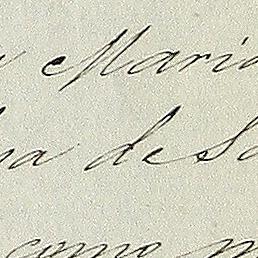 Maria
ha de Sa
como m